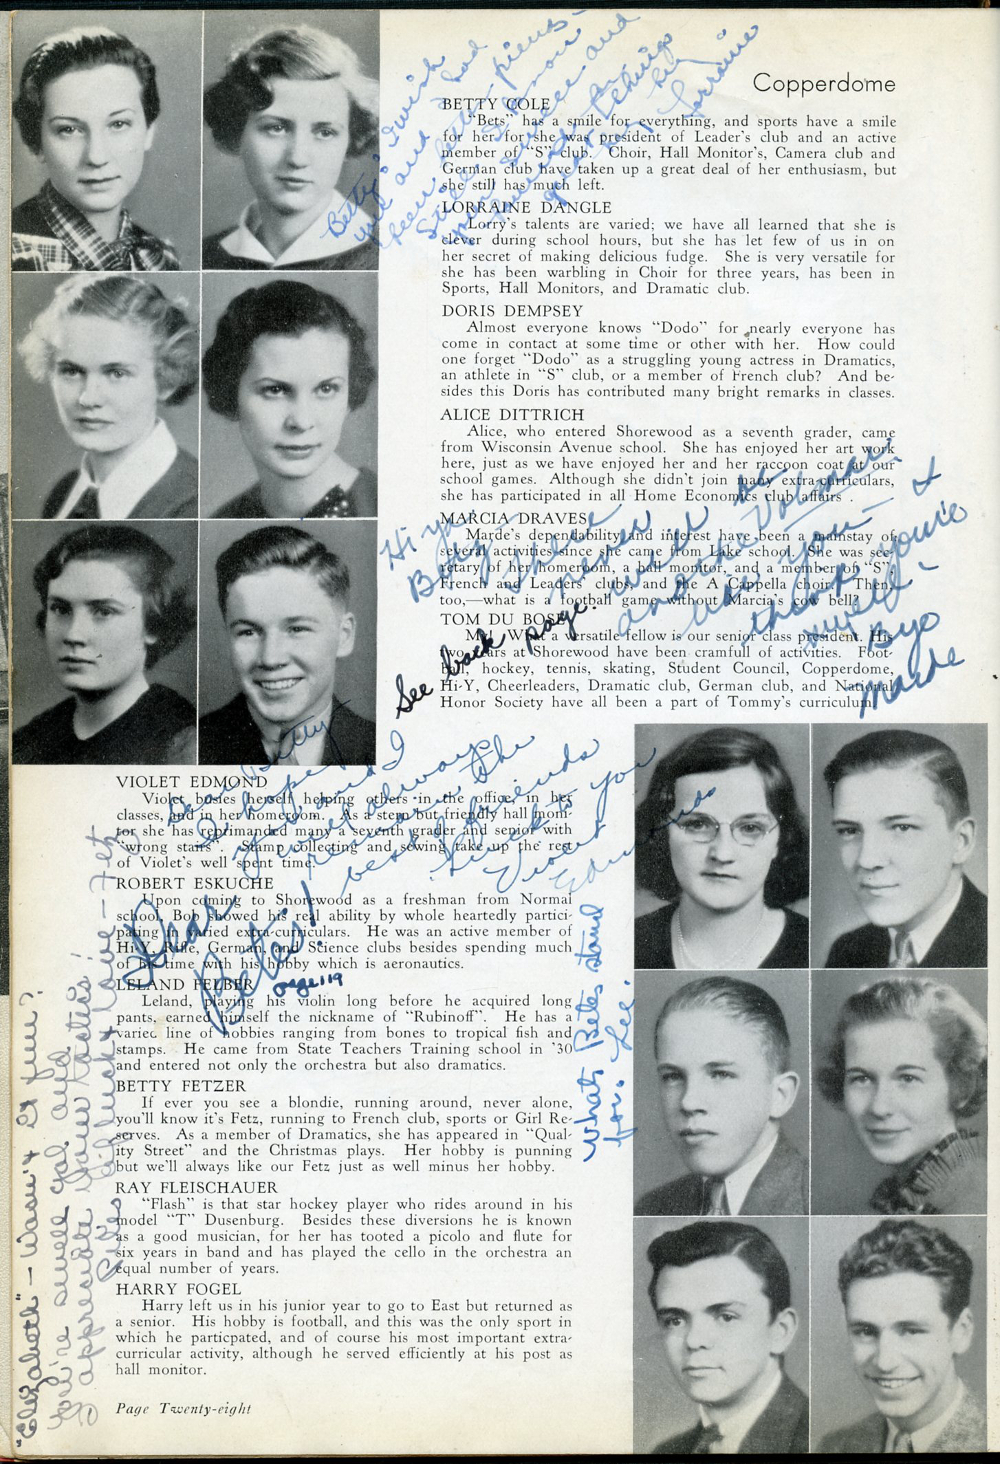 Copperdome
BETTY COLE
"Bets" has a smile for everything, and sports have a smile
for her for she was president of Leader's club and an active
member of "S" club. Choir, Hall Monitor's, Camera club and
German club have taken up a great deal of her enthusiasm, but
she still has much left.
LORRAINE DANGLE
Lorry's talents are varied; we have all learned that she is
clever during school hours, but she has let few of us in on
her secret of making delicious fudge. She is very versatile for
she has been warbling in Choir for three years, has been in
Sports, Hall Monitors, and Dramatic club.
DORIS DEMPSEY
Almost everyone knows "Dodo" for nearly everyone has
come in contact at some time or other with her. How could
one forget "Dodo" as a struggling young actress in Dramatics,
an athlete in "S" club, or a member of French club? And be-
sides this Doris has contributed many bright remarks in classes.
ALICE DITTRICH
Alice, who entered Shorewood as a seventh grader, came
from Wisconsin Avenue school. She has enjoyed her art work
here, just as we have enjoyed her and her raccoon coat at our
school games. Although she didn't join many extra-curriculars,
she has participated in all Home Economics club affairs .
MARCIA DRAVES
Marde's dependability and interest have been a mainstay of
several activities since she came from Lake school. She was sec-
retary of her homeroom, a hall monitor, and a member of "S",
French and Leaders' clubs, and the A Cappella choir. Then,
too,—what is a football game without Marcia's cow bell?
TOM DU BOSE
My! What a versatile fellow is our senior class president. His
two years at Shorewood have been cramfull of activities. Foot-
ball, hockey, tennis, skating, Student Council, Copperdome,
Hi-Y, Cheerleaders, Dramatic club, German club, and National
Honor Society have all been a part of Tommy's curriculum.
Hi ya,
Betty—
there
never
well
and the Volmar.
like you—
thank
&
you're
swell—
Byo
Marde
See back page.
Betty
Lorraine
VIOLET EDMOND
Violet busies herself helping others in the office, in her
classes, and in her homeroom. As a stern but friendly hall moni-
tor she has reprimanded many a seventh grader and senior with
"wrong stairs". Stamp collecting and sewing take up the rest
of Violet's well spent time.
ROBERT ESKUCHE
Upon coming to Shorewood as a freshman from Normal
school, Bob showed his real ability by whole heartedly partici-
pating in varied extra-curriculars. He was an active member of
Hi-Y, Rifle, German, and Science clubs besides spending much
of his time with his hobby which is aeronautics.
LELAND FELBER
Leland, playing his violin long before he acquired long
pants, earned himself the nickname of "Rubinoff". He has a
varied line of hobbies ranging from bones to tropical fish and
stamps. He came from State Teachers Training school in '30
and entered not only the orchestra but also dramatics.
BETTY FETZER
If ever you see a blondie, running around, never alone,
you'll know it's Fetz, running to French club, sports or Girl Re-
serves. As a member of Dramatics, she has appeared in "Qual-
ity Street" and the Christmas plays. Her hobby is punning
but we'll always like our Fetz just as well minus her hobby.
RAY FLEISCHAUER
"Flash" is that star hockey player who rides around in his
model "T" Dusenburg. Besides these diversions he is known
as a good musician, for her has tooted a picolo and flute for
six years in band and has played the cello in the orchestra an
equal number of years.
HARRY FOGEL
Harry left us in his junior year to go to East but returned as
a senior. His hobby is football, and this was the only sport in
which he particpated, and of course his most important extra-
curricular activity, although he served efficiently at his post as
hall monitor.
Dear Betty
I hope
you and I
will always
remain the
best of friends
Luck to you
Violet
Edmonds
Dear
Bets!
page 119
Whats Bets stand
for. Lee.
"Elizabeth"— Wasn't it fun?
You're a swell gal and
I appreciate your tactics!
Piles of luck & love — Fetz
Page Twenty-eight